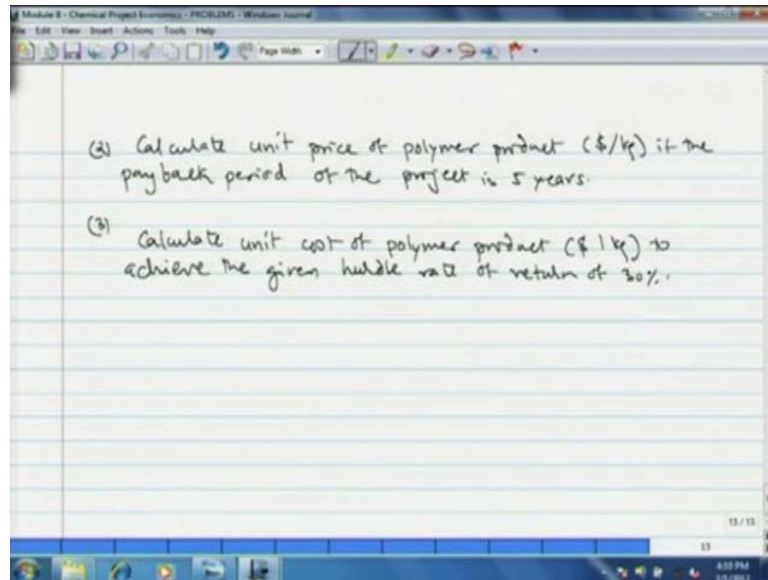 Module 8 - Chemical Project Economics - PROBLEMS - Windows Journal
File Edit View Insert Actions Tools Help
Page Width
(2) Calculate unit price of polymer product ($/kg) if the
payback period of the project is 5 years.
(3)
Calculate unit cost of polymer product ($/kg) to
achieve the given huldle rate of return of 30%.
13/13
13
4:53 PM